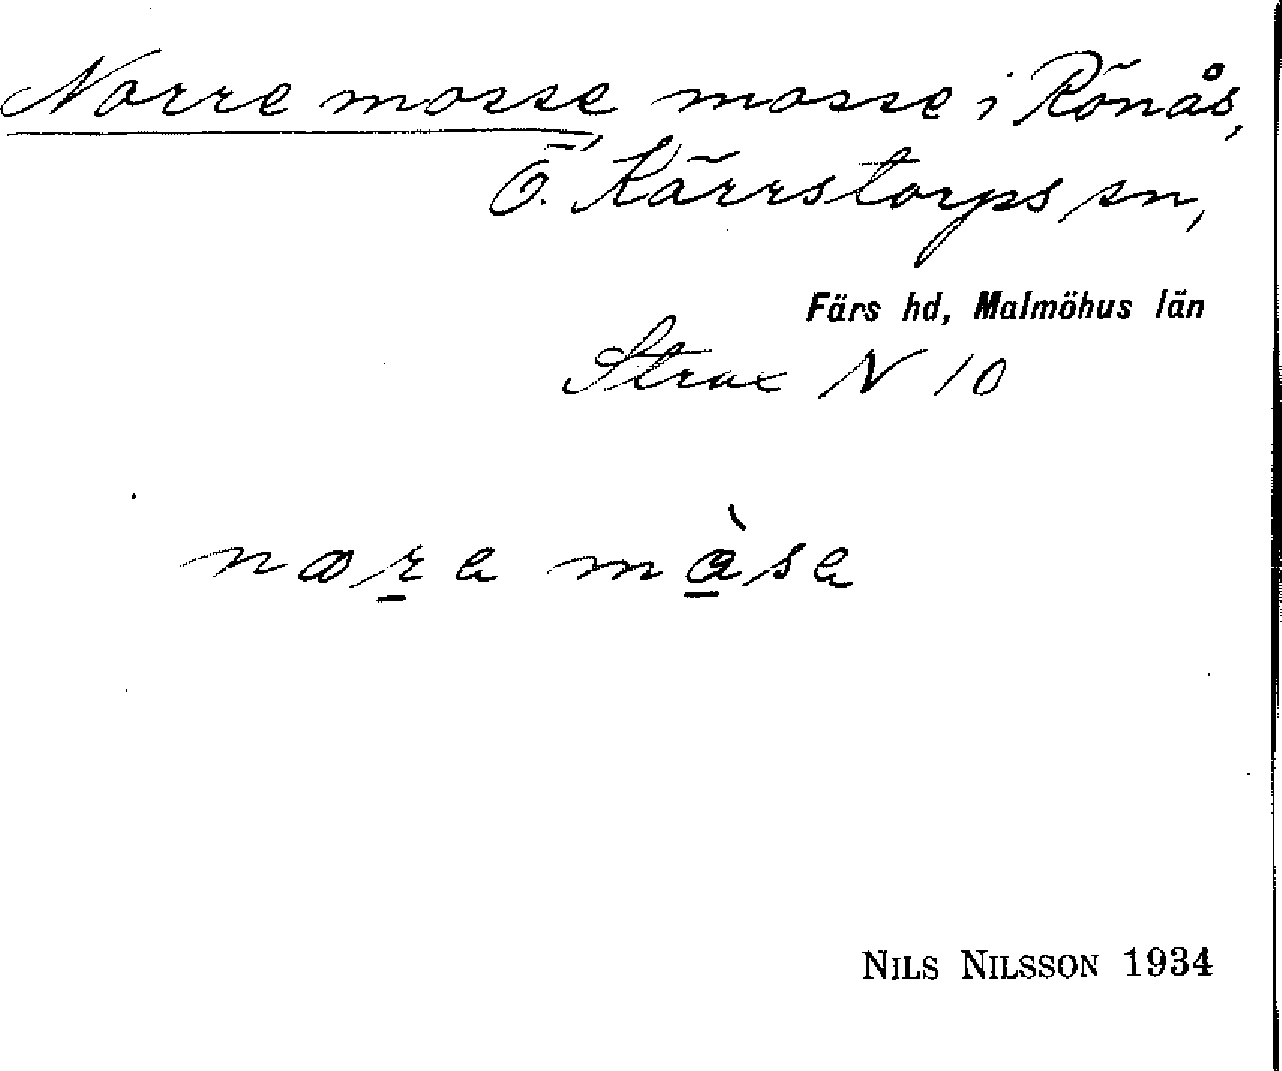 Norre mosse, mosse i Rönås,
Ö. Kärrstorps sn,
Färs hd, Malmöhus län
Strax N 10
NILS NILSSON 1934